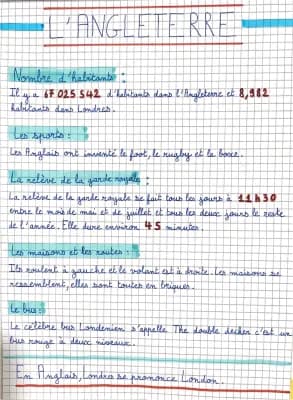 L'ANGLETERRE
Nombre d'habitants :
Il y a 67 025 542 d'habitants dans l'Angleterre et 8,982
habitants dans Londres.
Les sports :
Les Anglais ont inventé le foot, le rugby et la boxe.
La relève de la garde royale :
La relève de la garde royale se fait tous les jours à 11h30
entre le mois de mai et de juillet et tous les deux jours le reste
de l'année. Elle dure environ 45 minutes.
Les maisons et les routes :
Ils roulent à gauche et le volant est à droite. Les maisons se
ressemblent, elles sont toutes en briques.
Le bus :
Le célèbre bus Londonien s'appelle The double decker c'est un
bus rouge à deux niveaux.
En Anglais, Londres se prononce London.